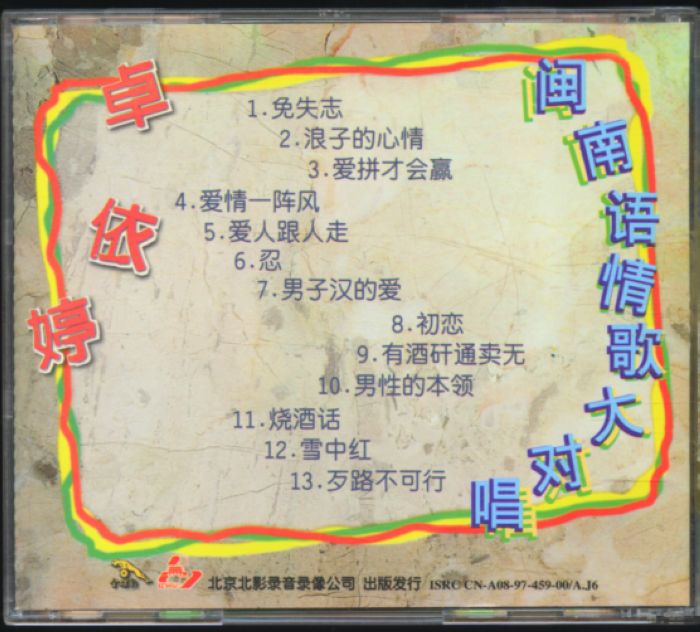 卓依婷
闽南语情歌大对唱
1.免失志
2.浪子的心情
3.爱拼才会赢
4.爱情一阵风
5.爱人跟人走
6.忍
7.男子汉的爱
8.初恋
9.有酒矸通卖无
10.男性的本领
11.烧酒话
12.雪中红
13.歹路不可行
北京北影录音录像公司 出版发行 ISRC CN-A08-97-459-00/A.J6